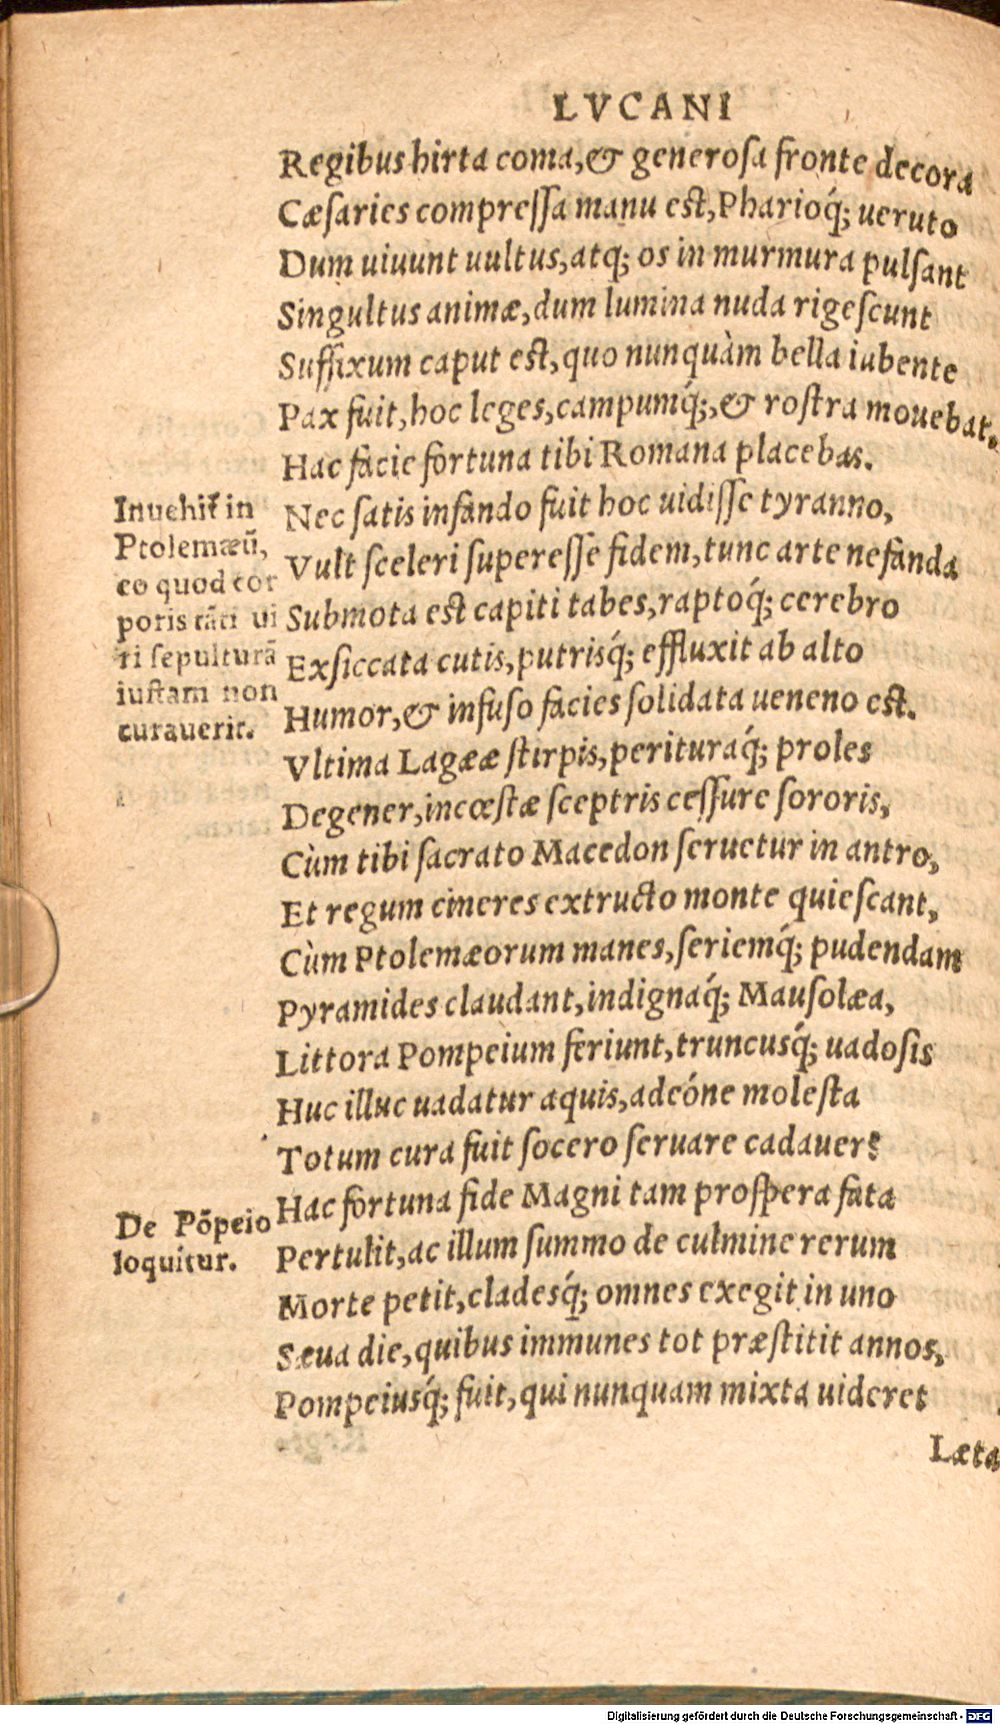 LVCANI
Regibus hirta coma, & generoſa fronte decora
Cæſaries compreſſa manu eſt, Pharioq́; ueruto
Dum uiuunt uultus, atq; os in murmura pulſant
Singultus animæ, dum lumina nuda rigeſcunt
Suffixum caput eſt, quo nunquàm bella iubente
Pax fuit, hoc leges, campumq́;, & roſtra mouebat.
Hac facie fortuna tibi Romana placebas.
Nec ſatis infando fuit hoc uidiſſe tyranno,
Vult ſceleri ſupereſſe fidem, tunc arte nefanda
Submota eſt capiti tabes, raptoq́; cerebro
Exſiccata cutis, putrisq́; effluxit ab alto
Humor, & infuſo facies ſolidata ueneno eſt.
Vltima Lagææ ſtirpis, perituraq́; proles
Degener, incœſtæ ſceptris ceſſure ſororis,
Cùm tibi ſacrato Macedon ſeruetur in antro,
Et regum cineres extructo monte quieſcant,
Cùm Ptolemæorum manes, ſeriemq́; pudendam
Pyramides claudant, indignaq́; Mauſolæa,
Littora Pompeium feriunt, truncusq́; uadoſis
Huc illuc uadatur aquis, adeóne moleſta
Totum cura fuit ſocero ſeruare cadauer?
Hac fortuna fide Magni tam proſpera fata
Pertulit, ac illum ſummo de culmine rerum
Morte petit, cladesq́; omnes exegit in uno
Sæua die, quibus immunes tot præſtitit annos,
Pompeiusq́; fuit, qui nunquam mixta uideret
Læta
Inuehit̃ in
Ptolemæũ,
eo quod cor
poris tãti ui
ri ſepulturã
iuſtam non
curauerit.
De Põpeio
loquitur.
Digitalisierung gefördert durch die Deutsche Forschungsgemeinschaft - DFG